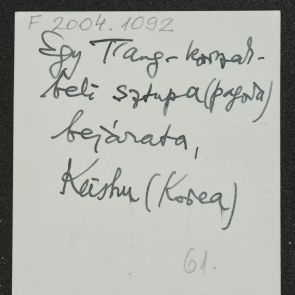 F 2004.1092
Egy T'ang-korszak-
beli sztupa (pagoda)
bejárata,
Keishu (Korea)
61.